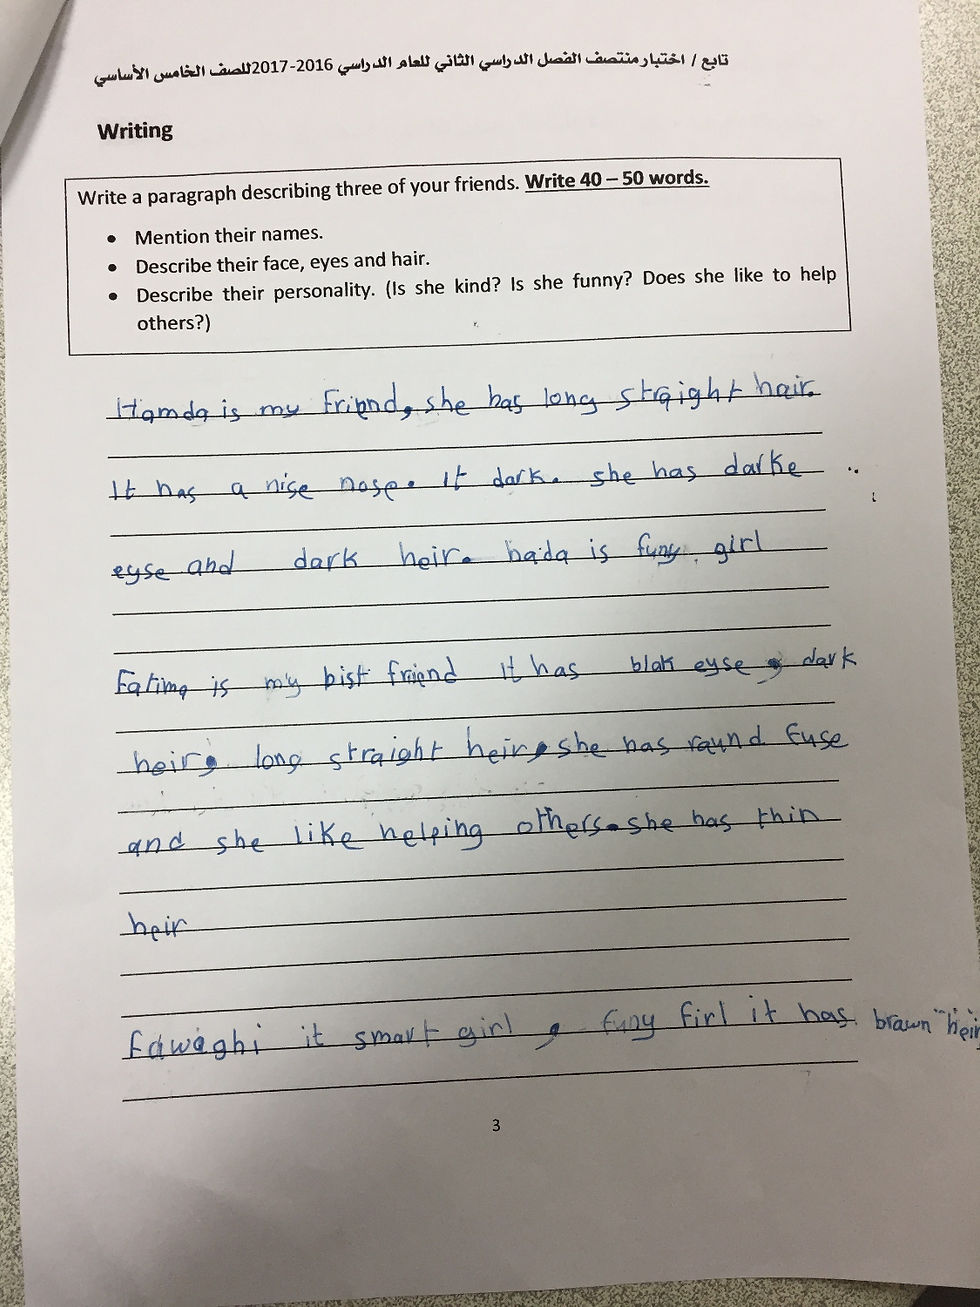 تابع / اختبار منتصف الفصل الدراسي الثاني للعام الدراسي 2016-2017للصف الخامس الأساسي
Writing
Write a paragraph describing three of your friends. Write 40 – 50 words.
• Mention their names.
• Describe their face, eyes and hair.
• Describe their personality. (Is she kind? Is she funny? Does she like to help
others?)
Hamda is my friend, she has long straight hair.
It has a nise nose. It dark. she has darke
eyse and dark heir. hada is funy girl
Fatima is my bist friend It has blak eyse, dark
heir, long straight heir, she has raund fuse
and she like helping others. she has thin
heir
fawaghi it smart girl, funy firl it has brawn heir
3